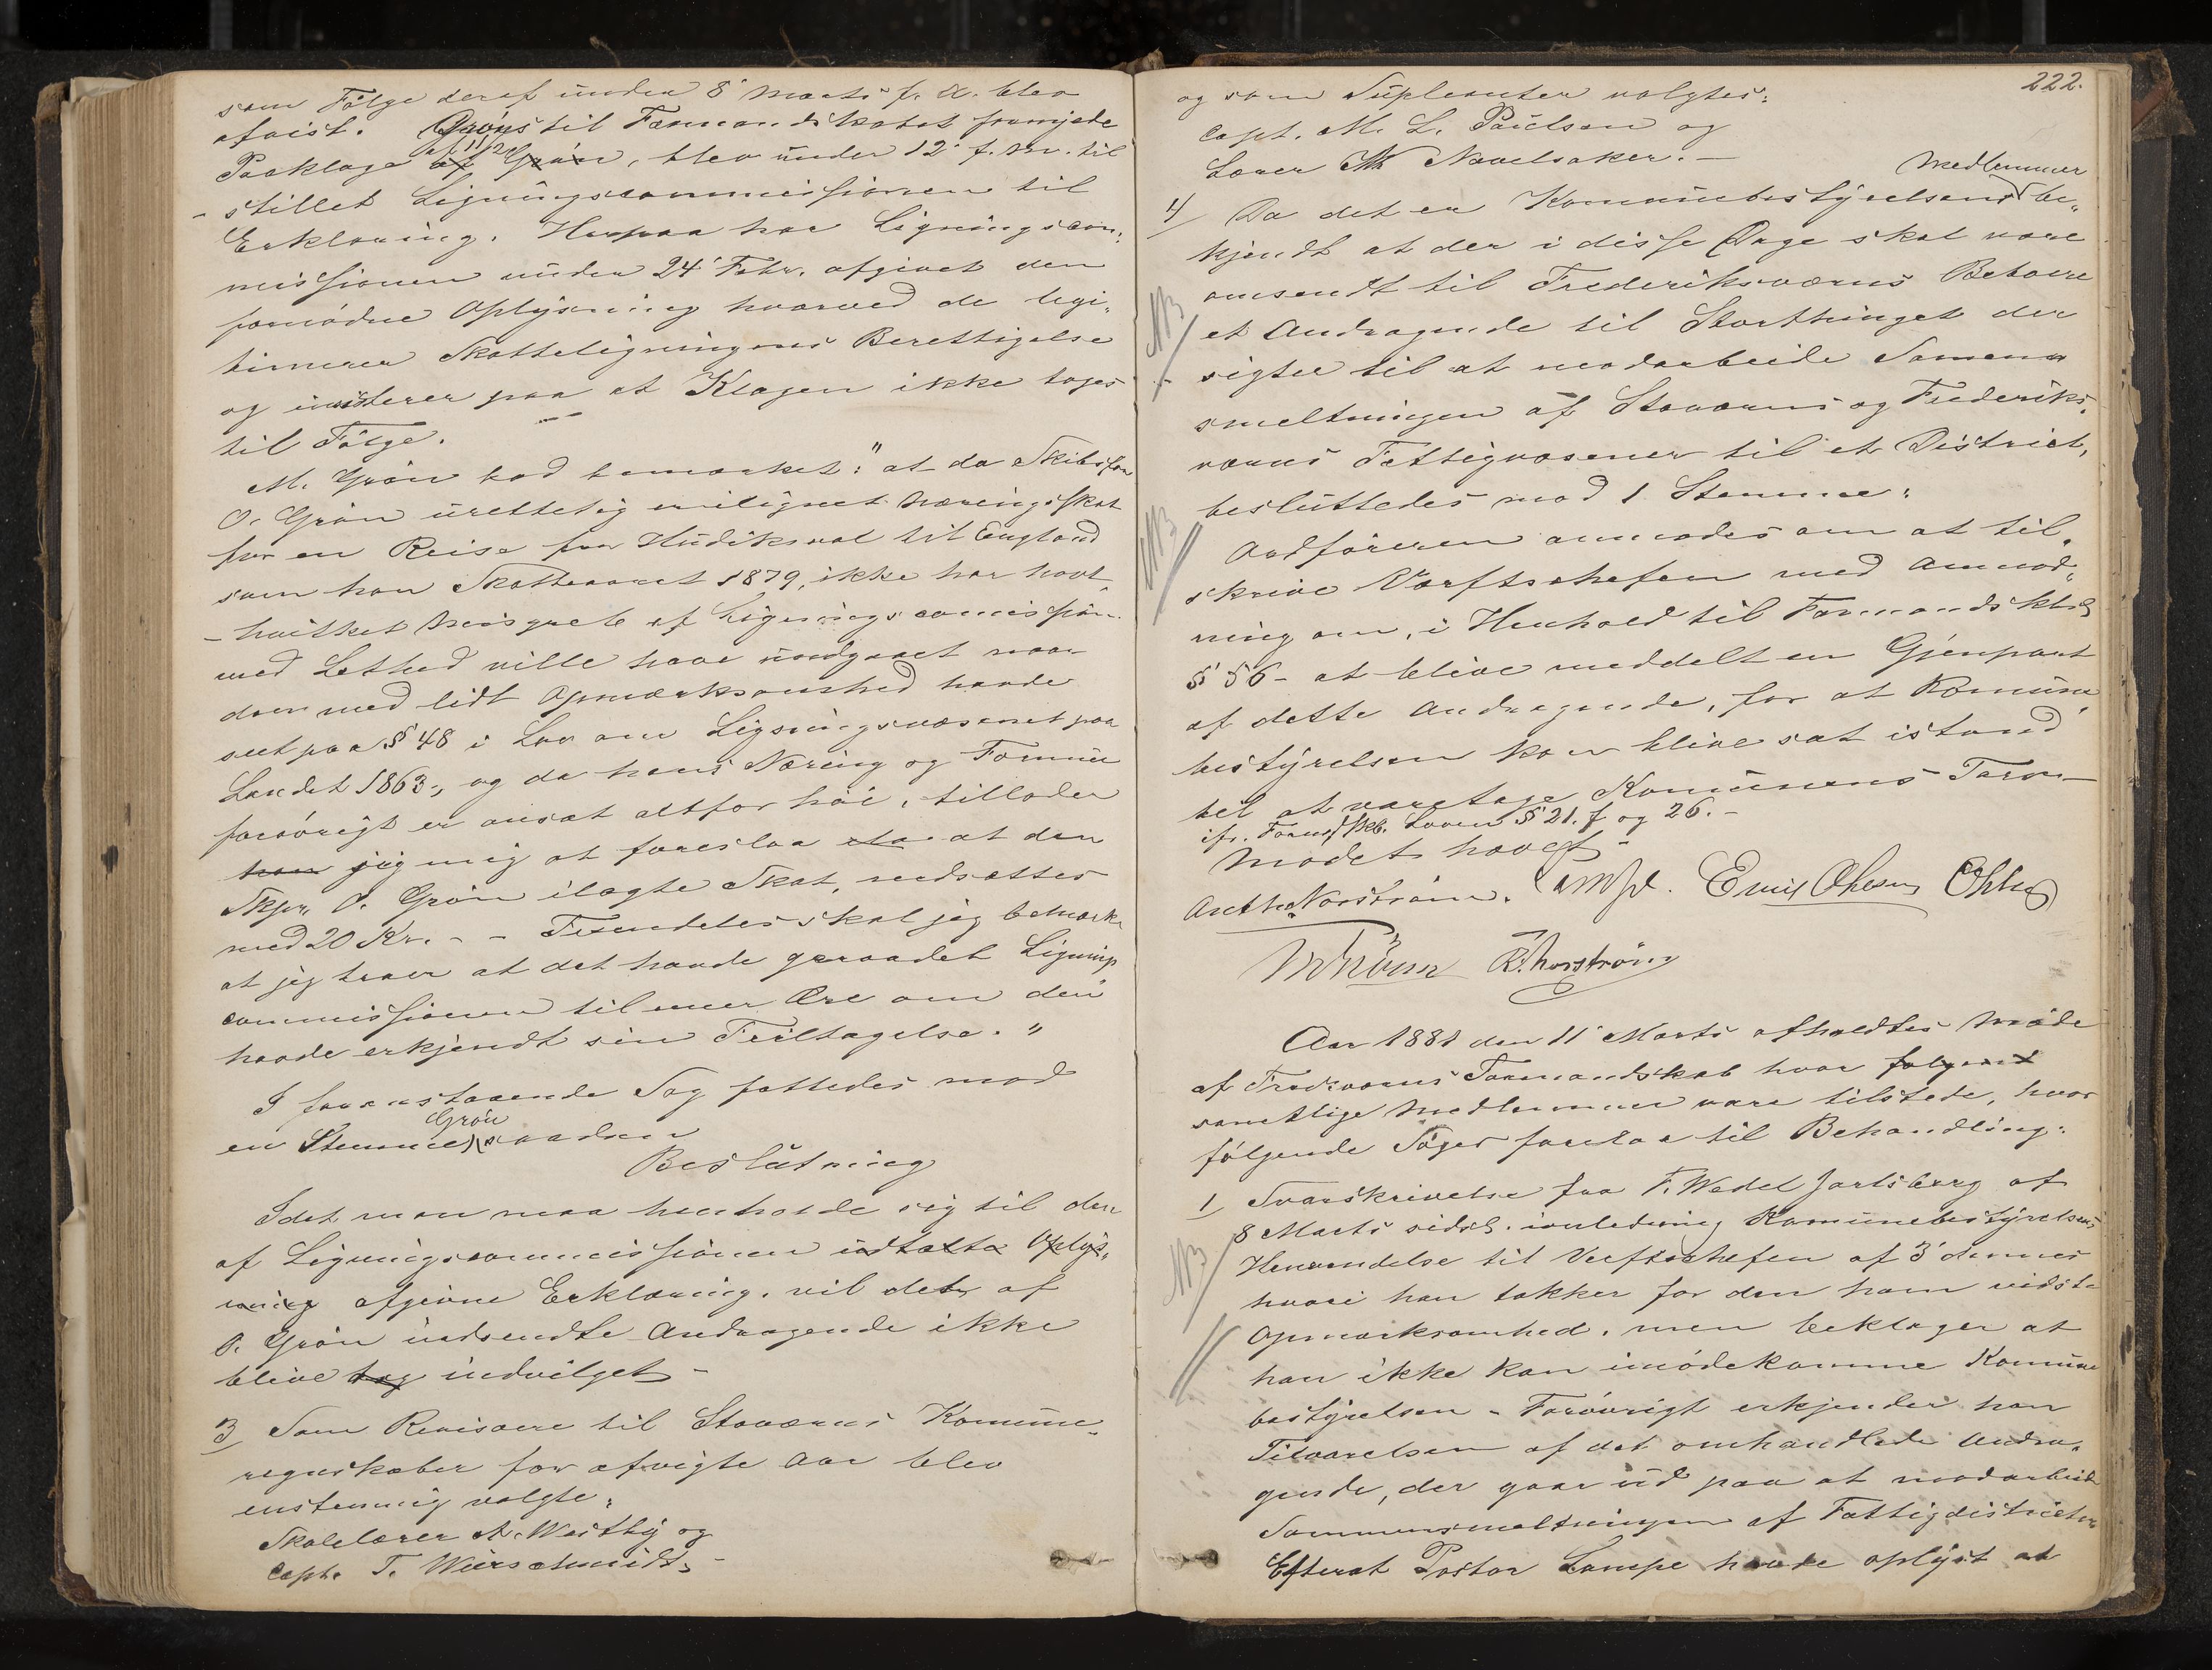 som Følge deraf under 8 Marts f. A. blev
afvist. Grøns til Formandskabet fremjede
Paaklage af 11/2 af Grøn, blev under 12' f. M. til
stillet Ligningscommissionen til
Erklæring. Herpaa har Ligningscom-
missionen under 24' Febr. afgivet den
fornødne Oplysning hvorved de legi-
timerer Skatteligningens Berettigelse
og insisterer paa at Klagen ikke tages
til Følge.
M. Grøn bad bemærket: "at da Skibsfør
O. Grøn urettetig er ilignet Næringsskat
for en Reise fra Hudiksval til England
som han Skatteaaret 1879, ikke har havt
- hvilket Misgreb af Ligningscomission
med Lethed ville have undgaaet naar
den med lidt Opmærksomhed havde
seet paa § 48 i Lov om Ligningsvæsenet paa
Landet 1863., og da hans Næring og Formue
forøvrigt er ansat altfor høi, tillader
han jeg mig at foreslaa at den
Skpr. O. Grøn ilagte Skat, nedsættes
med 20 Kr. - - Fremdeles skal jeg bemærke
at jeg troer at det havde geraadet Lignings
commissionen til mer Ære om den
havde erkjendt sin Feiltagelse. "
I foranstaaende Sag fattedes mod
Grøn
en Stemme saadan
Beslutning
Idet man maa henholde sig til den
af Ligningscommissionen udtalte Oplys-
ning afgivne Erklæring, vil det af
O. Grøn indsendte Andragende ikke
blive tag indvilget -
3 Som Revisorer til Staværns Kommune-
regnskaber for afvigte Aar blev
enstemmig valgte:
Skolelærer A. Westby og
Capt. T. Wierschmidt -
222.
og som Supleanter valgtes:
Capt. M. L. Paulsen og
Lærer Navelsaker. -
Medlemmer
4 Da det er Kommunebestyrelsens be-
kjendt at der i disse Dage skal være
omsendt til Frederiksværns Beboere
NB
et Andragende til Storthinget der
sigter til at modarbeide Sammen
smeltningen af Staværns og Frederiks-
værns Fattigvæsener til et District,
besluttedes mod 1 Stemme:
NB
Ordføreren anmodes om at til-
skrive Værftschefen med Anmod-
ning om, i Henhold til Formandskbl
§ 56 - at blive meddelt en Gjenpart
af dette Andragende, for at Kommune
bestyrelsen kan blive sat istand
til at varetage Kommunens Tarv -
ifr. Formdskb. Loven § 21. f og 26. -
Mødet hævet -
Anth. Norstrøm. Lampe. Emil Olsen
R. Norstrøm
Aar 1881 den 11' Marts afholdtes Møde
af Fredsværns Formandskab hvor følgend
samtlige Medlemmer vare tilstede, hvor
følgende Sager forelaa til Behandling:
1 Svarskrivelse fra F. Wedel Jarlsberg af
8 Marts sidstl. innledning Komunebestyrelsens
NB
Henvendelse til Verftschefen af 3' dennes
hvori han takker for den ham vidste
Opmærksomhed, men beklager at
han ikke kan imødekomme Komune
bestyrelsen - Forøvrigt erkjender han
Tilværelsen af det omhandlede Andra-
gende, der gaar ud paa at modarbeide
Sammensmeltningen af Fattigdistricter
Efterat Pastor Lampe havde oplyst at